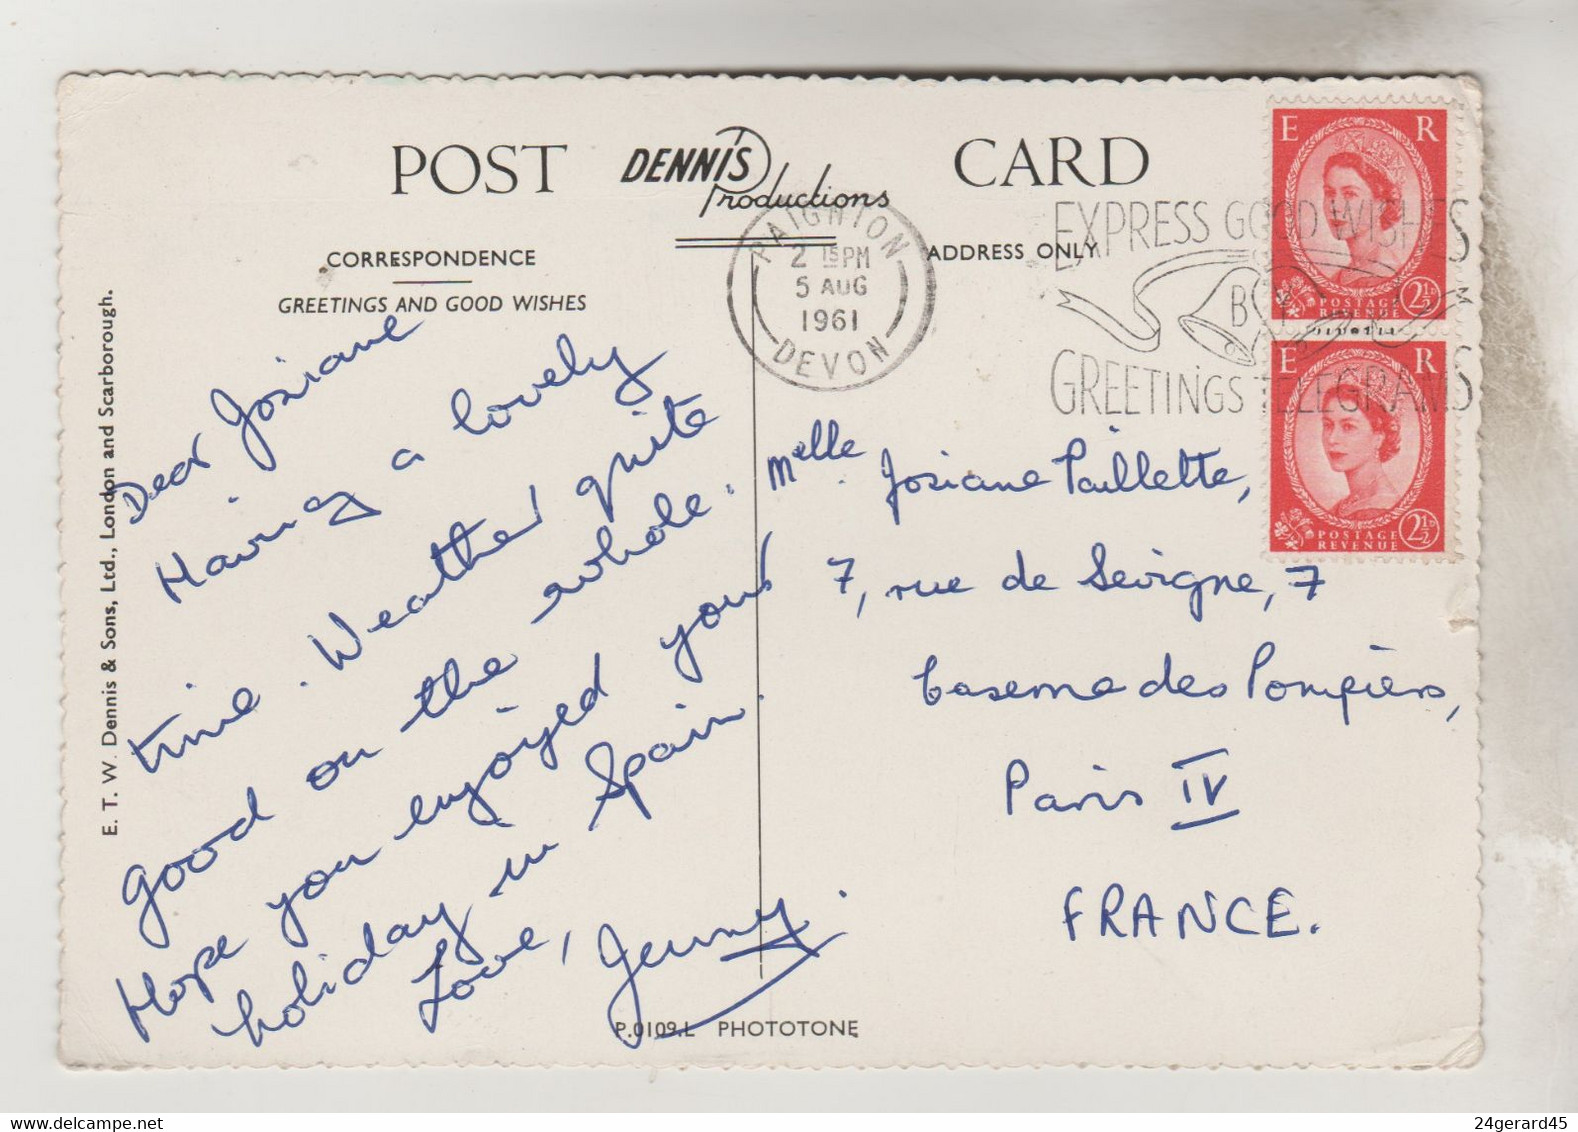 POST DENNIS Productions CARD
CORRESPONDENCE
GREETINGS AND GOOD WISHES
ADDRESS ONLY
PAIGNTON
2 15 PM
5 AUG
1961
DEVON
EXPRESS GOOD WISHES
BY
GREETINGS TELEGRAMS
E R
POSTAGE
REVENUE
2½D
E R
POSTAGE
REVENUE
2½D
Dear Josiane
Having a lovely
time. Weather quite
good on the whole.
Hope you enjoyed your
holiday in Spain.
Love, Jenny.
Melle. Josiane Paillette,
7, rue de Sévigne, 7
Caserne des Pompiers,
Paris IV
FRANCE.
E. T. W. Dennis & Sons, Ltd., London and Scarborough.
P.0109.L PHOTOTONE
24gerard45